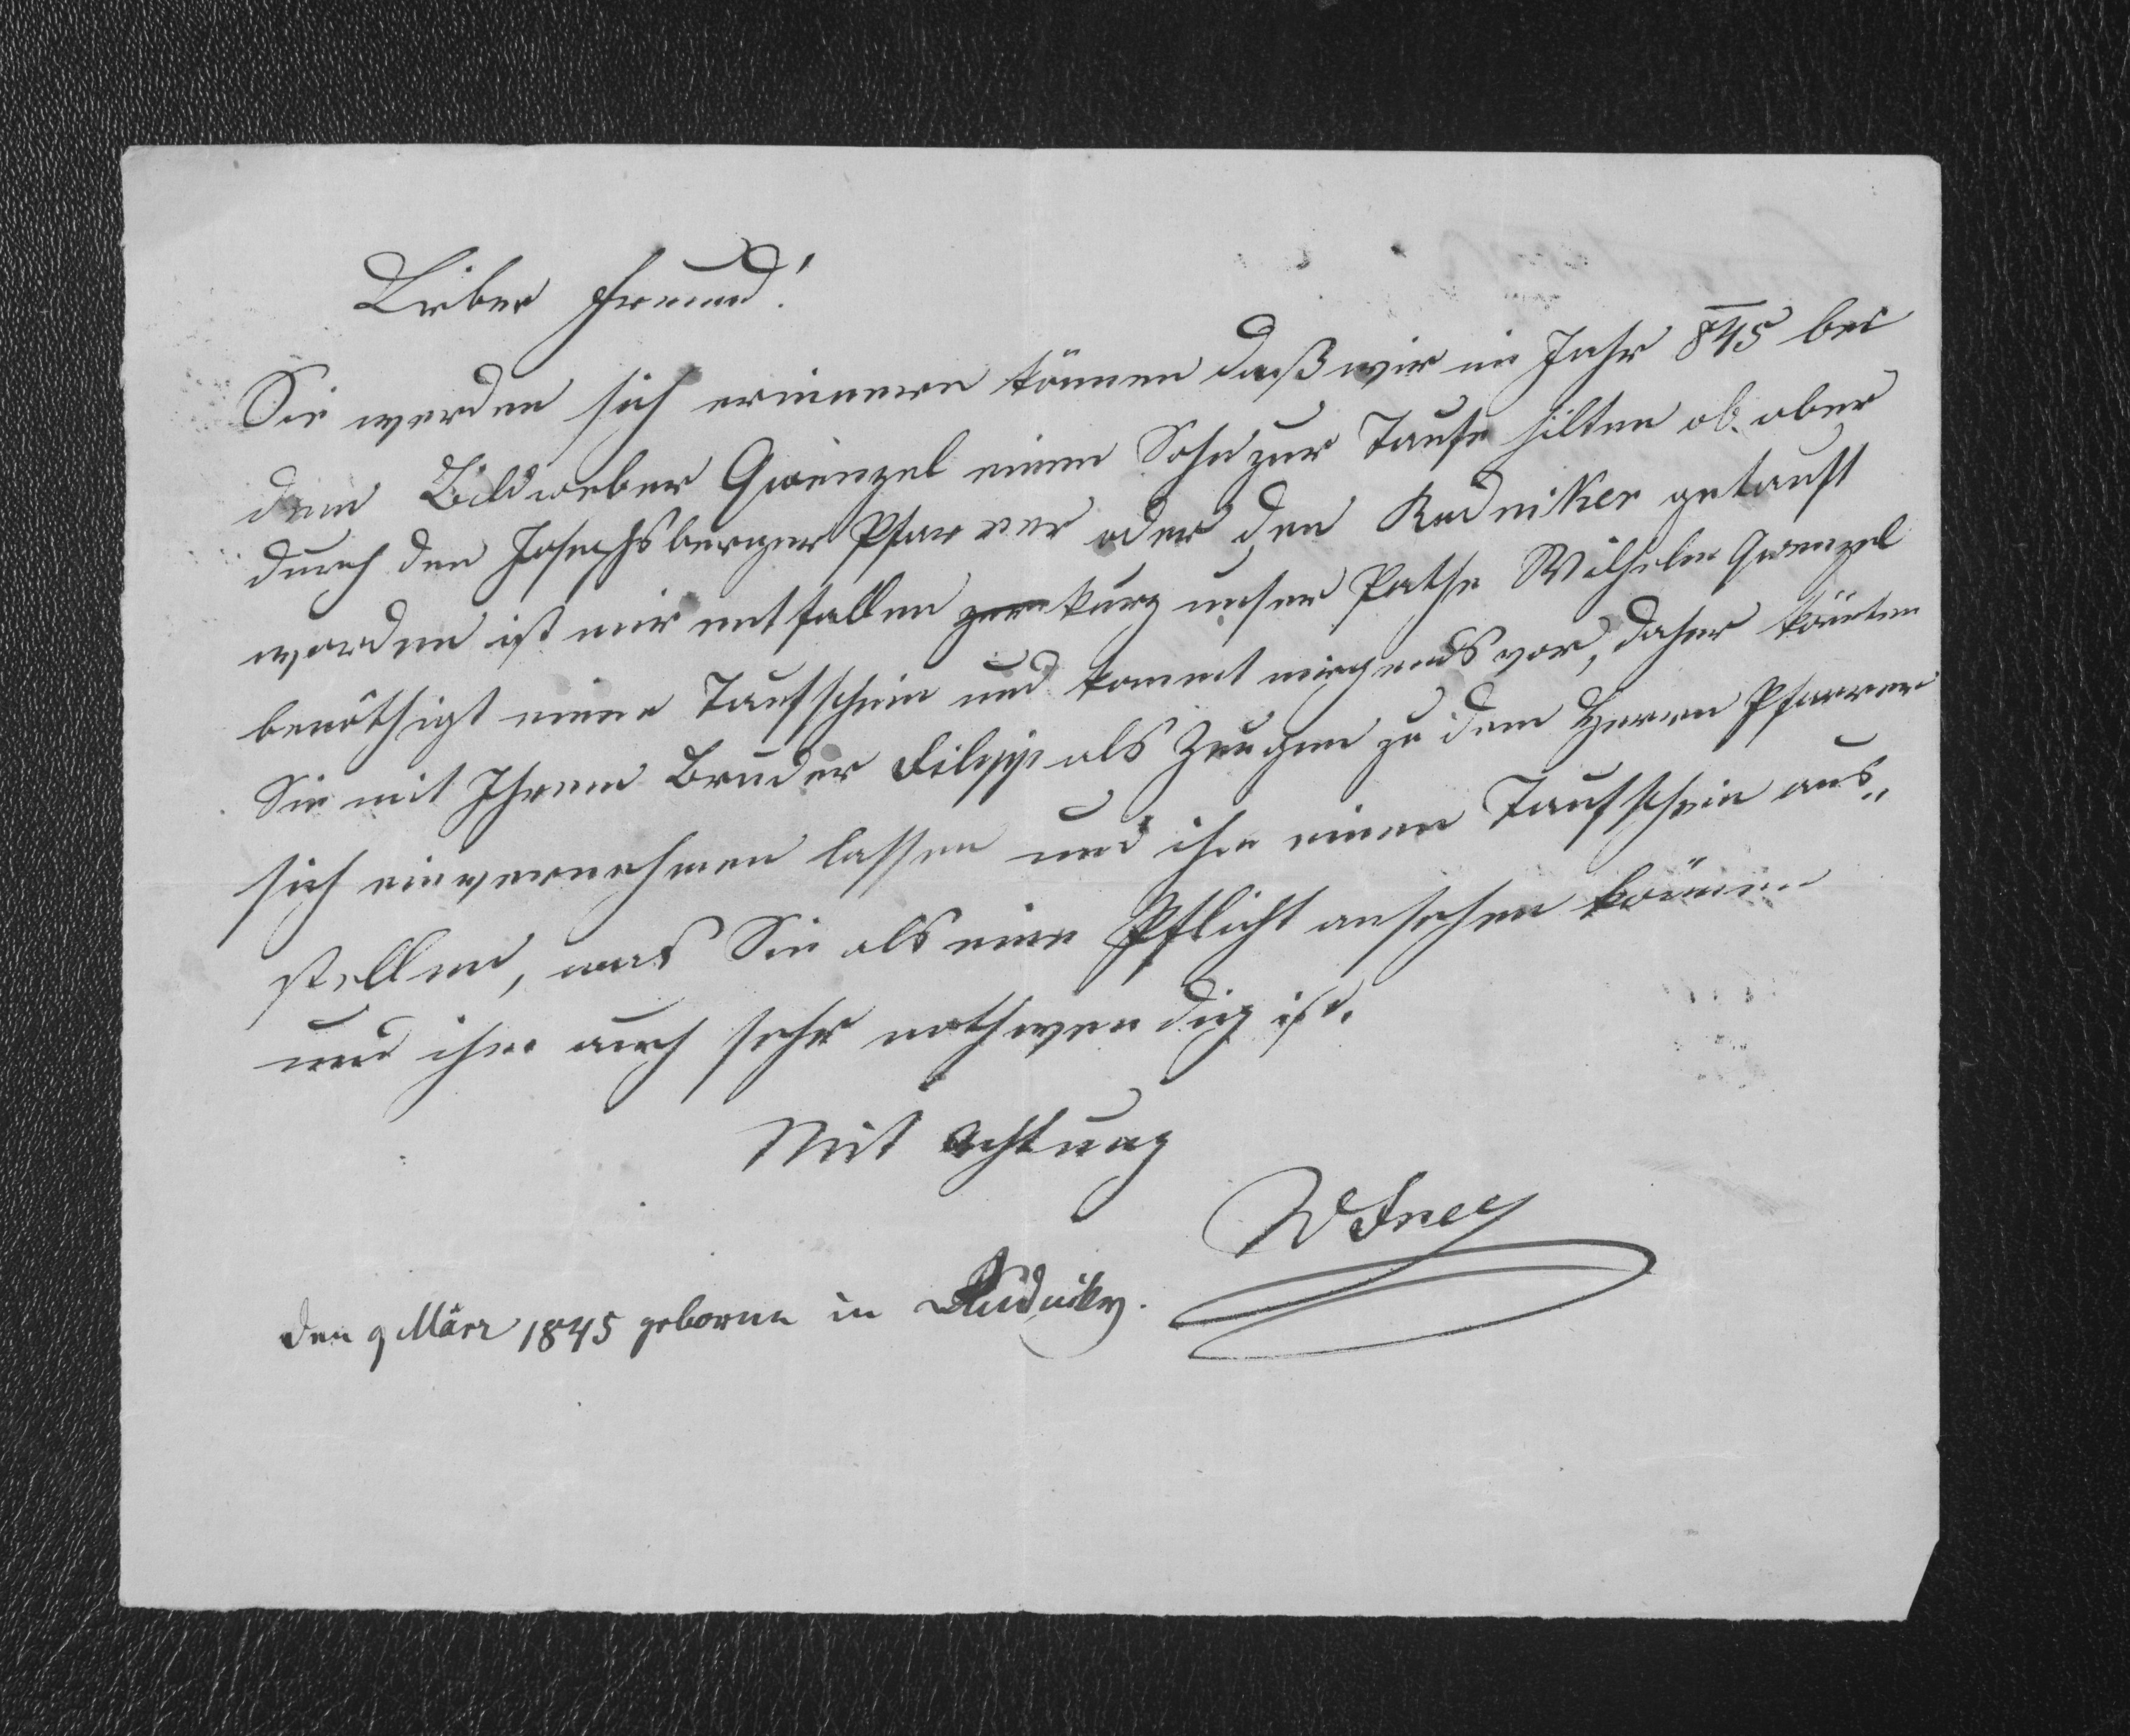 Lieber Freund!
Sie werden sich erinnern können daß wir im Jahr 845 bei
dem Bildweber Gwenzel einen Sohn zur Taufe hilten ob. aber
durch den Josephsberger Pfarrer oder den Rudniker getauft
worden ist mir entfallen kurz unser Pathe Wilhelm Gwenzel
benöthigt einen Taufschein und kommt nirgends vor, daher könten
Sie mit Ihrem Bruder Filipp als Zeugen zu dem Herren Pfarrer
sich einvernehmen lassen und ihm einen Taufschein aus„
stellen, was Sie als eine Pflicht ansehen können
und ihm auch sehr nothwendig ist.
Mit Achtung
den 9 März 1845 geboren in Rudniky.